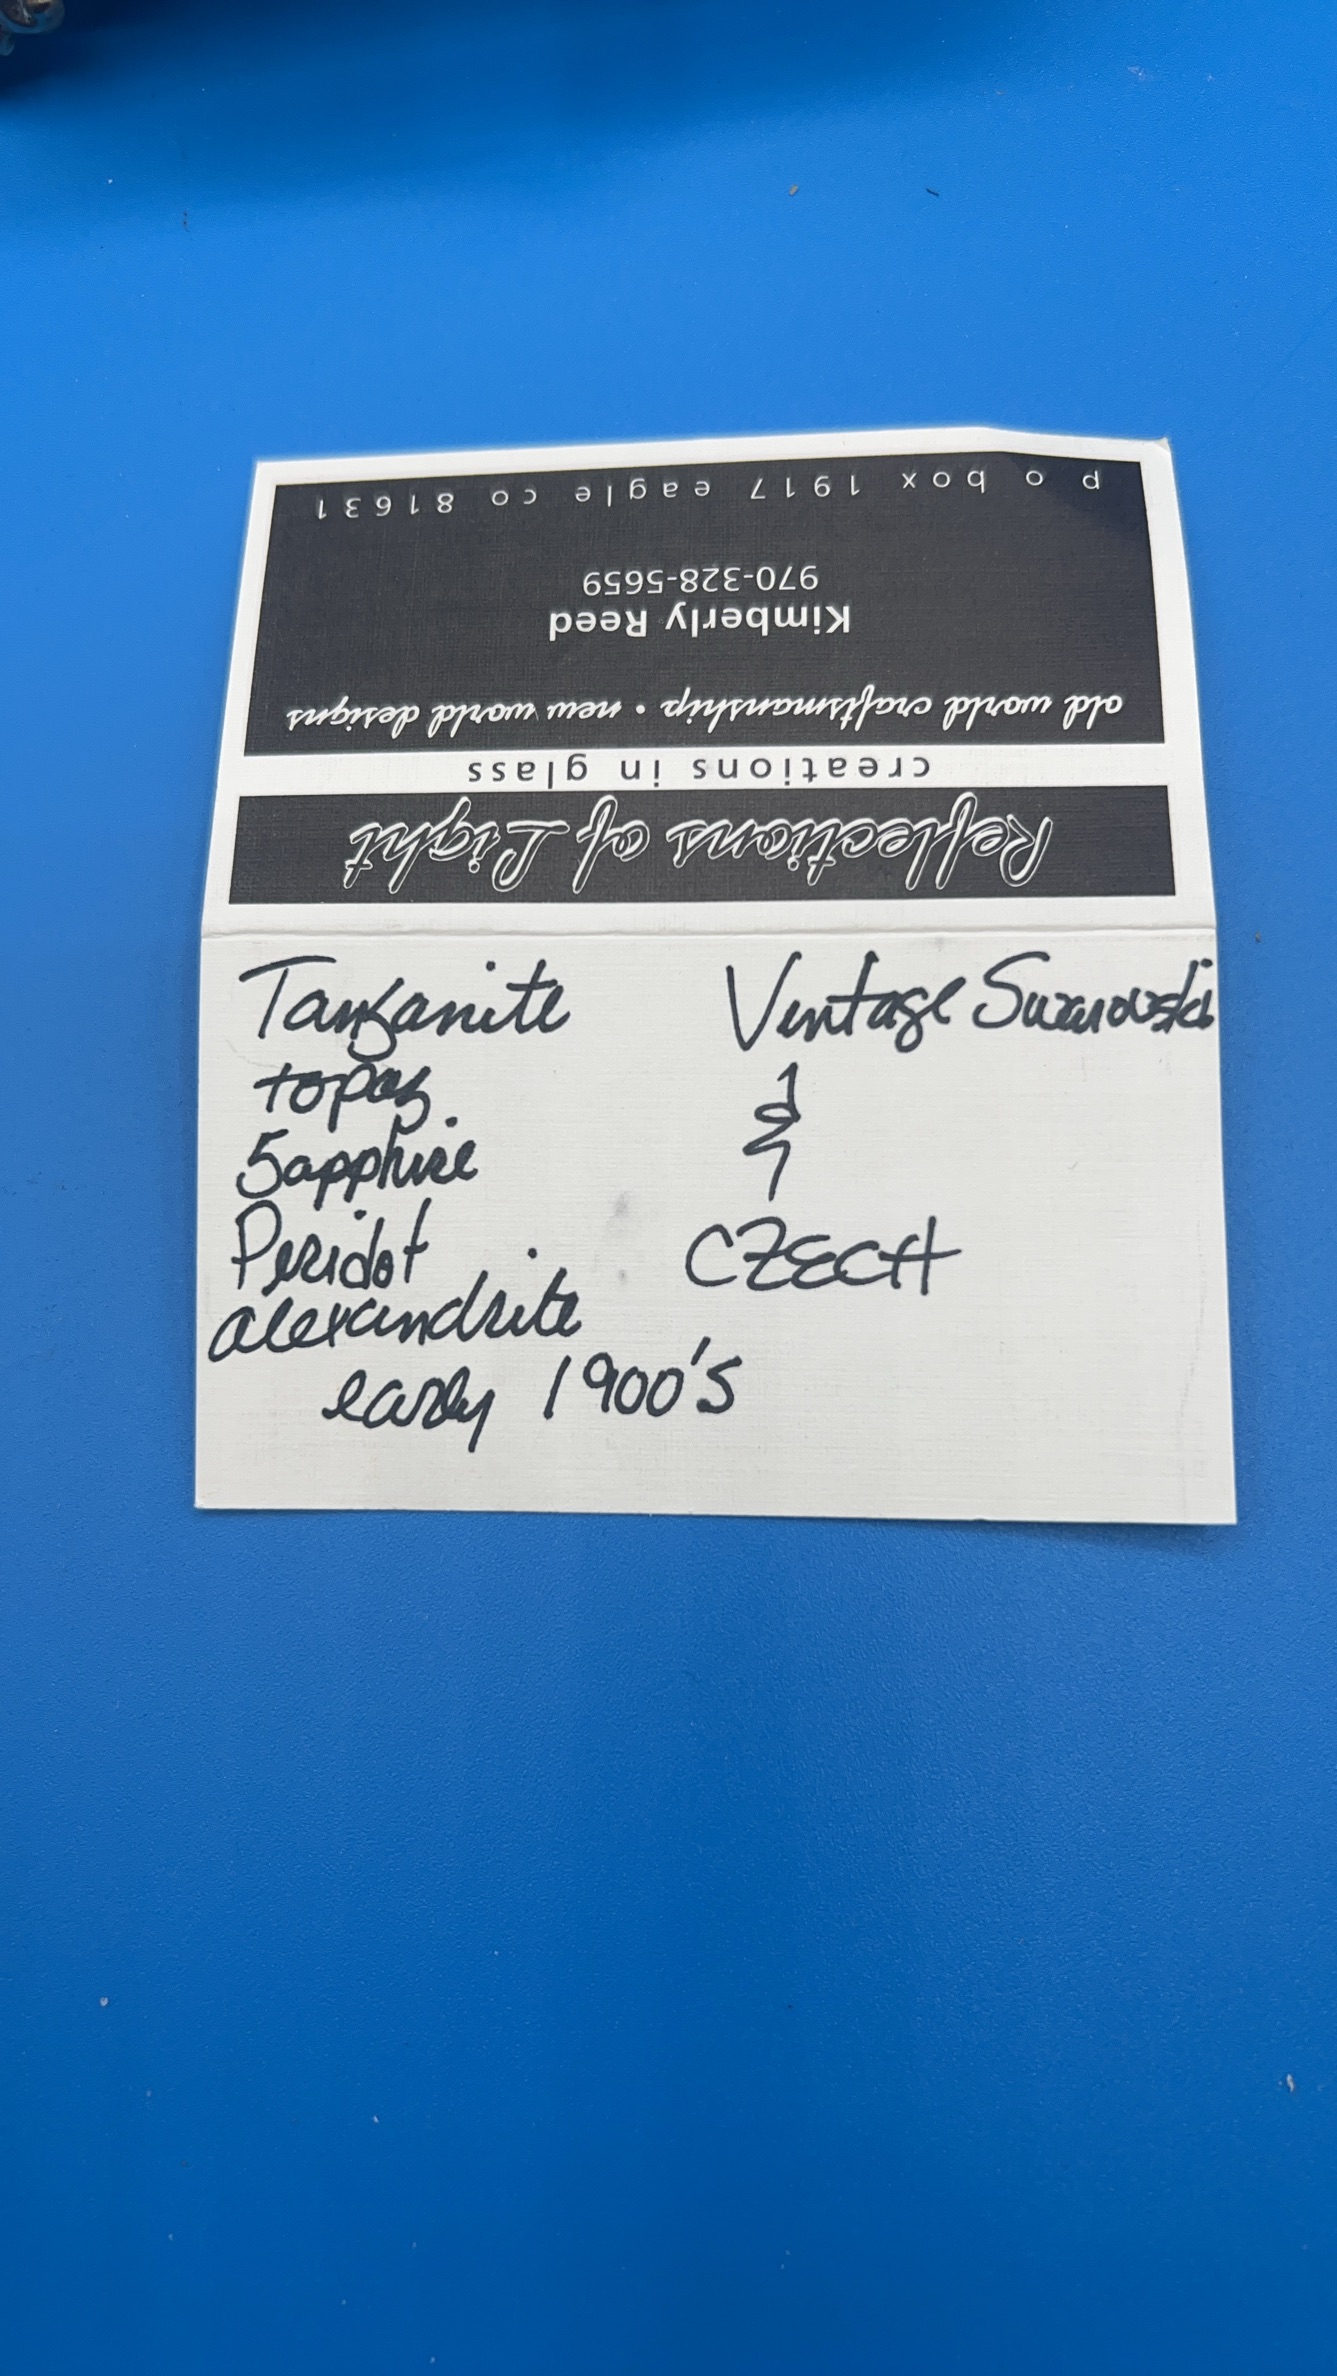 p o box 1917 eagle co 81631
970-328-5659
Kimberly Reed
old world craftsmanship • new world designs
creations in glass
Reflections of Light
Tanzanite
topaz
Sapphire
Peridot
alexandrite
early 1900's
Vintage Swarovski
&
CZECH